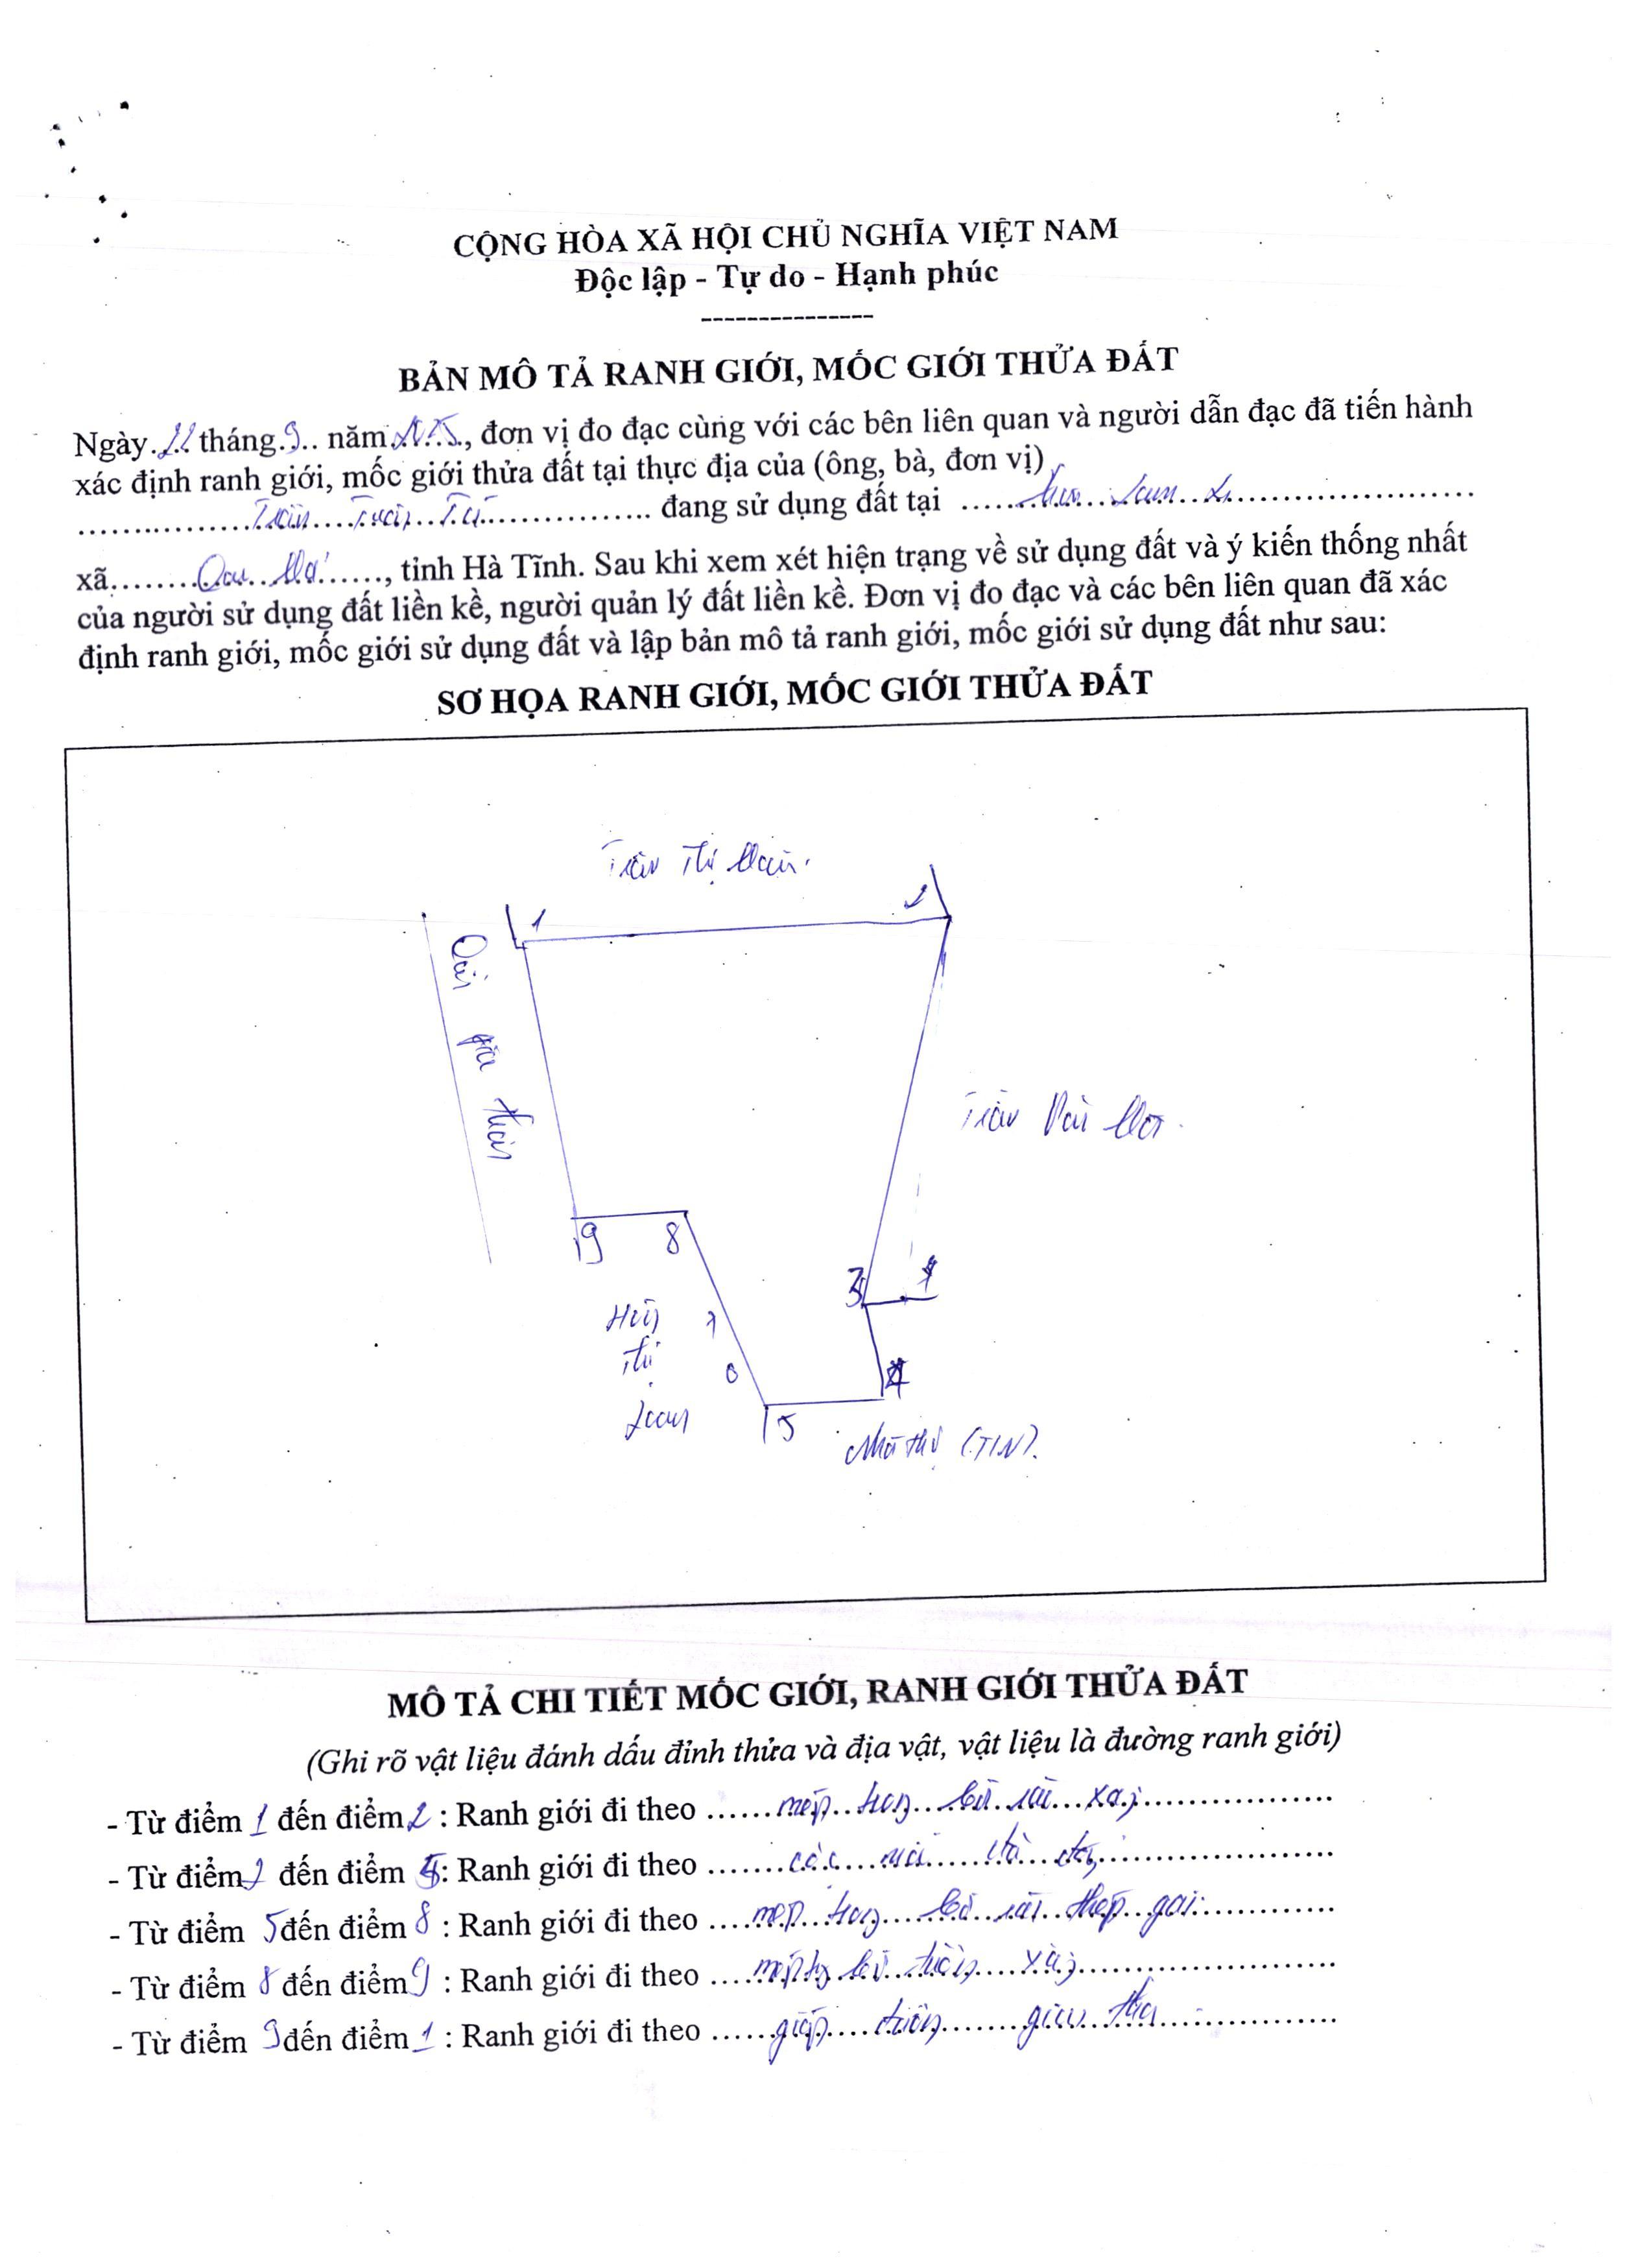 CỘNG HÒA XÃ HỘI CHỦ NGHĨA VIỆT NAM
Độc lập - Tự do - Hạnh phúc
---------------
BẢN MÔ TẢ RANH GIỚI, MỐC GIỚI THỬA ĐẤT
Ngày 22 tháng 9 năm 2025, đơn vị đo đạc cùng với các bên liên quan và người dẫn đạc đã tiến hành
xác định ranh giới, mốc giới thửa đất tại thực địa của (ông, bà, đơn vị)
Trần đang sử dụng đất tại
xã, tỉnh Hà Tĩnh. Sau khi xem xét hiện trạng về sử dụng đất và ý kiến thống nhất
của người sử dụng đất liền kề, người quản lý đất liền kề. Đơn vị đo đạc và các bên liên quan đã xác
định ranh giới, mốc giới sử dụng đất và lập bản mô tả ranh giới, mốc giới sử dụng đất như sau:
SƠ HỌA RANH GIỚI, MỐC GIỚI THỬA ĐẤT
Trần Thị
1 2
Trần
9 8
3
7
Thị 6 4
Loan 5
(TIN).
MÔ TẢ CHI TIẾT MỐC GIỚI, RANH GIỚI THỬA ĐẤT
(Ghi rõ vật liệu đánh dấu đỉnh thửa và địa vật, vật liệu là đường ranh giới)
- Từ điểm 1 đến điểm 2 : Ranh giới đi theo mép trong bờ rào xây
- Từ điểm 2 đến điểm 5 : Ranh giới đi theo các
- Từ điểm 5 đến điểm 8 : Ranh giới đi theo mép trong bờ rào thép gai
- Từ điểm 8 đến điểm 9 : Ranh giới đi theo bờ tường xây
- Từ điểm 9 đến điểm 1 : Ranh giới đi theo giáp đường giao